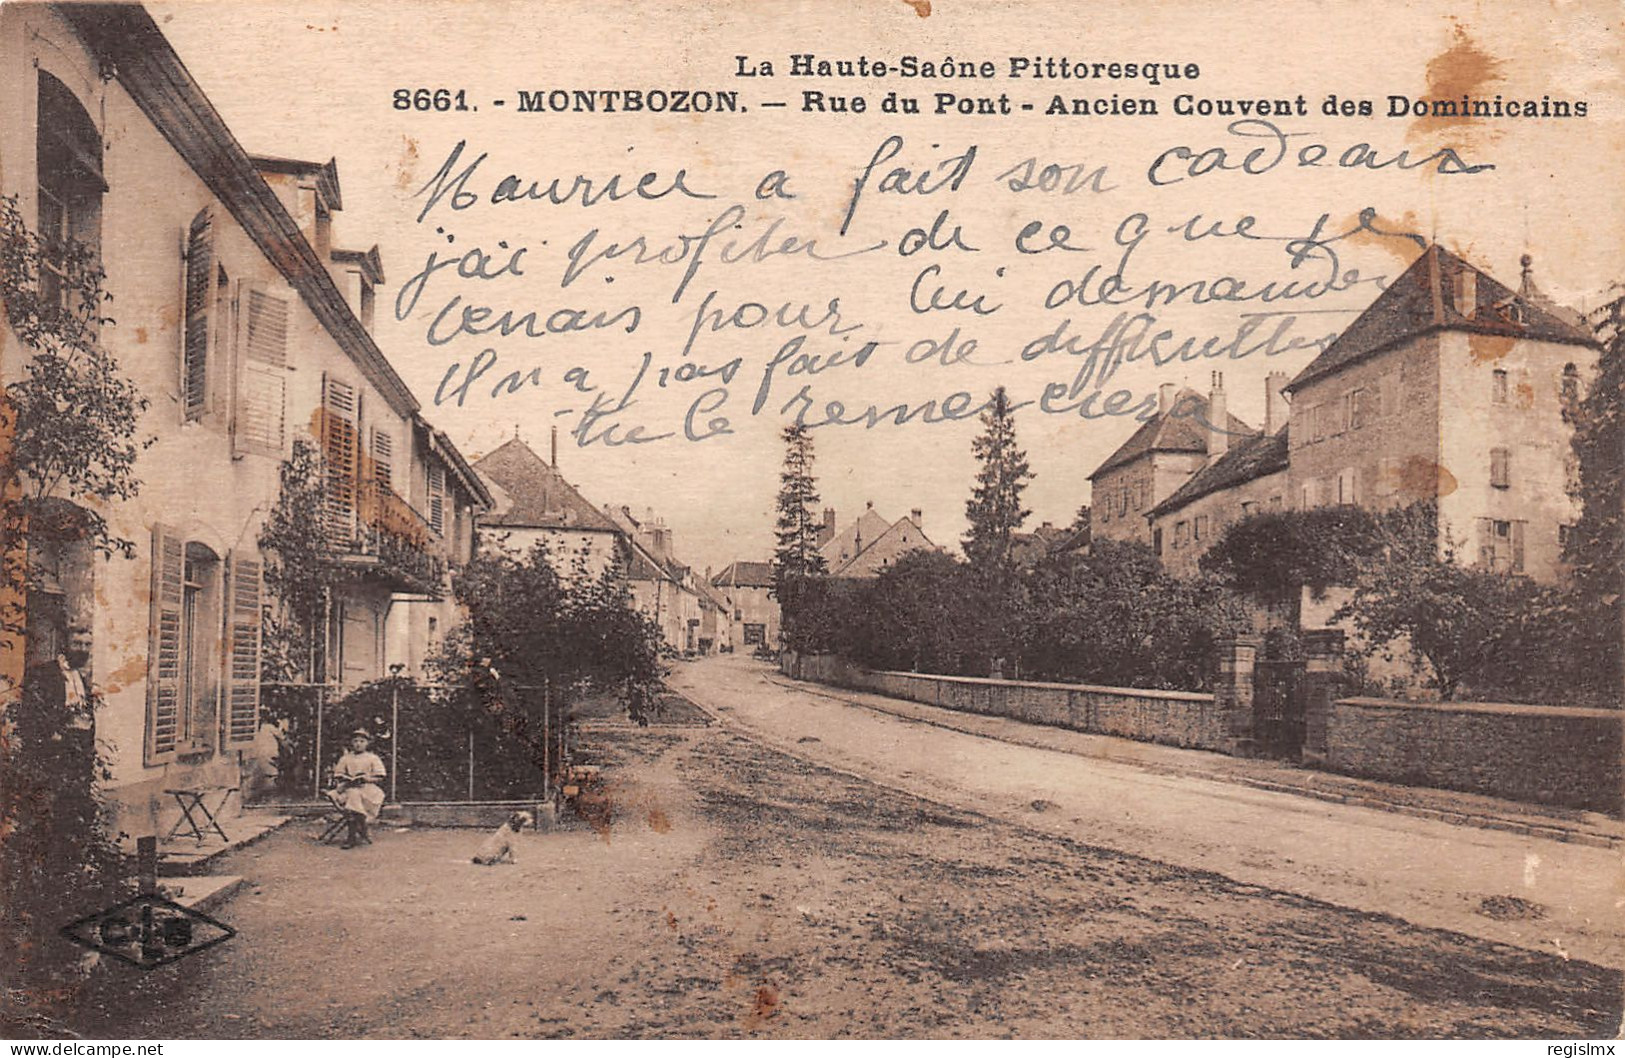 La Haute-Saône Pittoresque
8661. - MONTBOZON. — Rue du Pont - Ancien Couvent des Dominicains
Maurice a fait son cadeau
j'ai profiter de ce que je
venais pour lui demander
il n a pas fait de difficultes
tu le remerciera
C L B
www.delcampe.net
regislmx